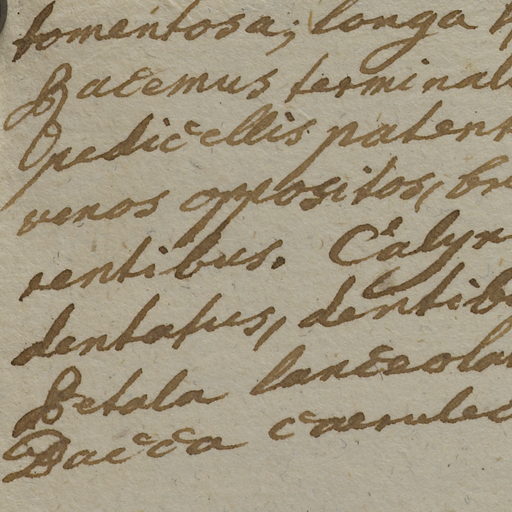 tomentosa; longa
Racemus terminal
pedicellis patent
venos oppositos, br
rentibus. Calyx
dentatus, dentib
Petala lanceola
Bacca caerule